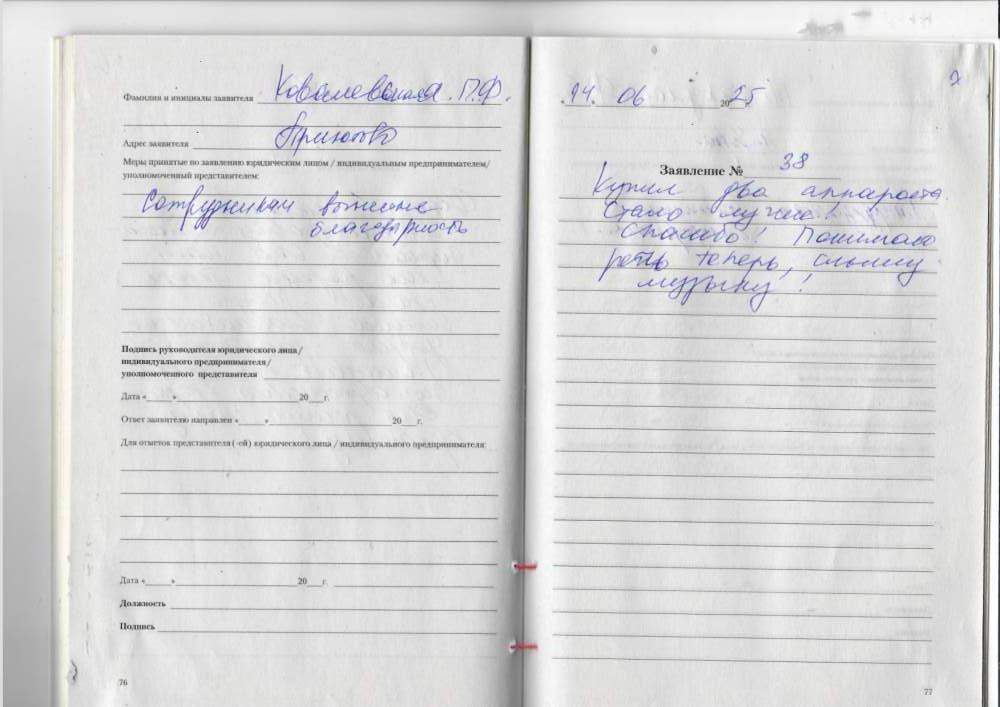 Фамилия и инициалы заявителя Ковалевская П.Ф.
Адрес заявителя
Меры принятые по заявлению юридическим лицом / индивидуальным предпринимателем/
уполномоченный представителем:
Сотрудникам
благодарность
Подпись руководителя юридического лица/
индивидуального предпринимателя/
уполномоченного представителя
Дата «____»____ 20___г.
Ответ заявителю направлен «____»____ 20___г.
Для отметок представителя (-ей) юридического лица / индивидуального предпринимателя:
Дата «____»____ 20___г.
Должность
Подпись
76
2
«14» 06 2025
Заявление № 38
Купил два аппарата.
Стало лучше!
Спасибо! Понимаю
речь теперь, слышу
музыку!
77